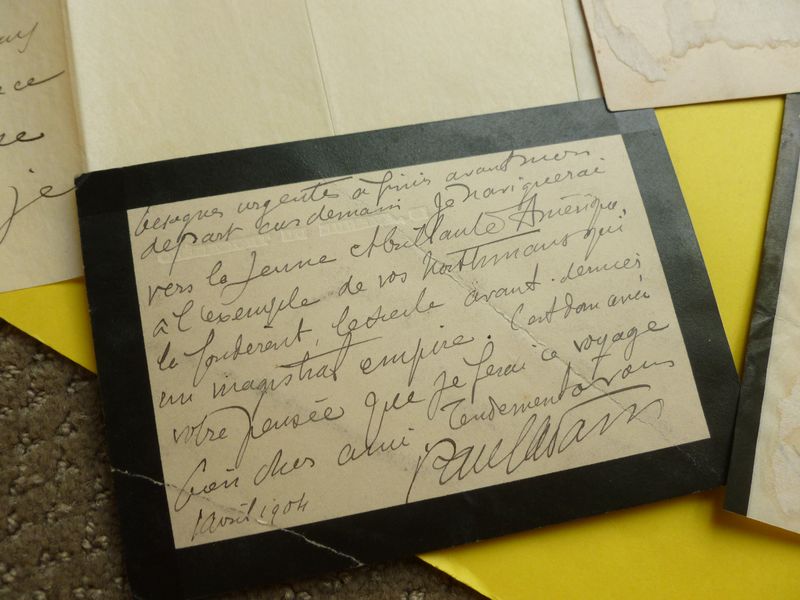 ay
ce
re
je
besognes urgentes à finir avant mon
départ après demain. Je naviguerai
vers la jeune et brillante Amérique
à l'exemple de vos Northmans qui
la fondèrent, le siècle avant-dernier
un magistral empire. C'est dans
votre pensée que je ferai ce voyage
bien cher ami. Tendement à vous
Paul Adam
1 avril 1904